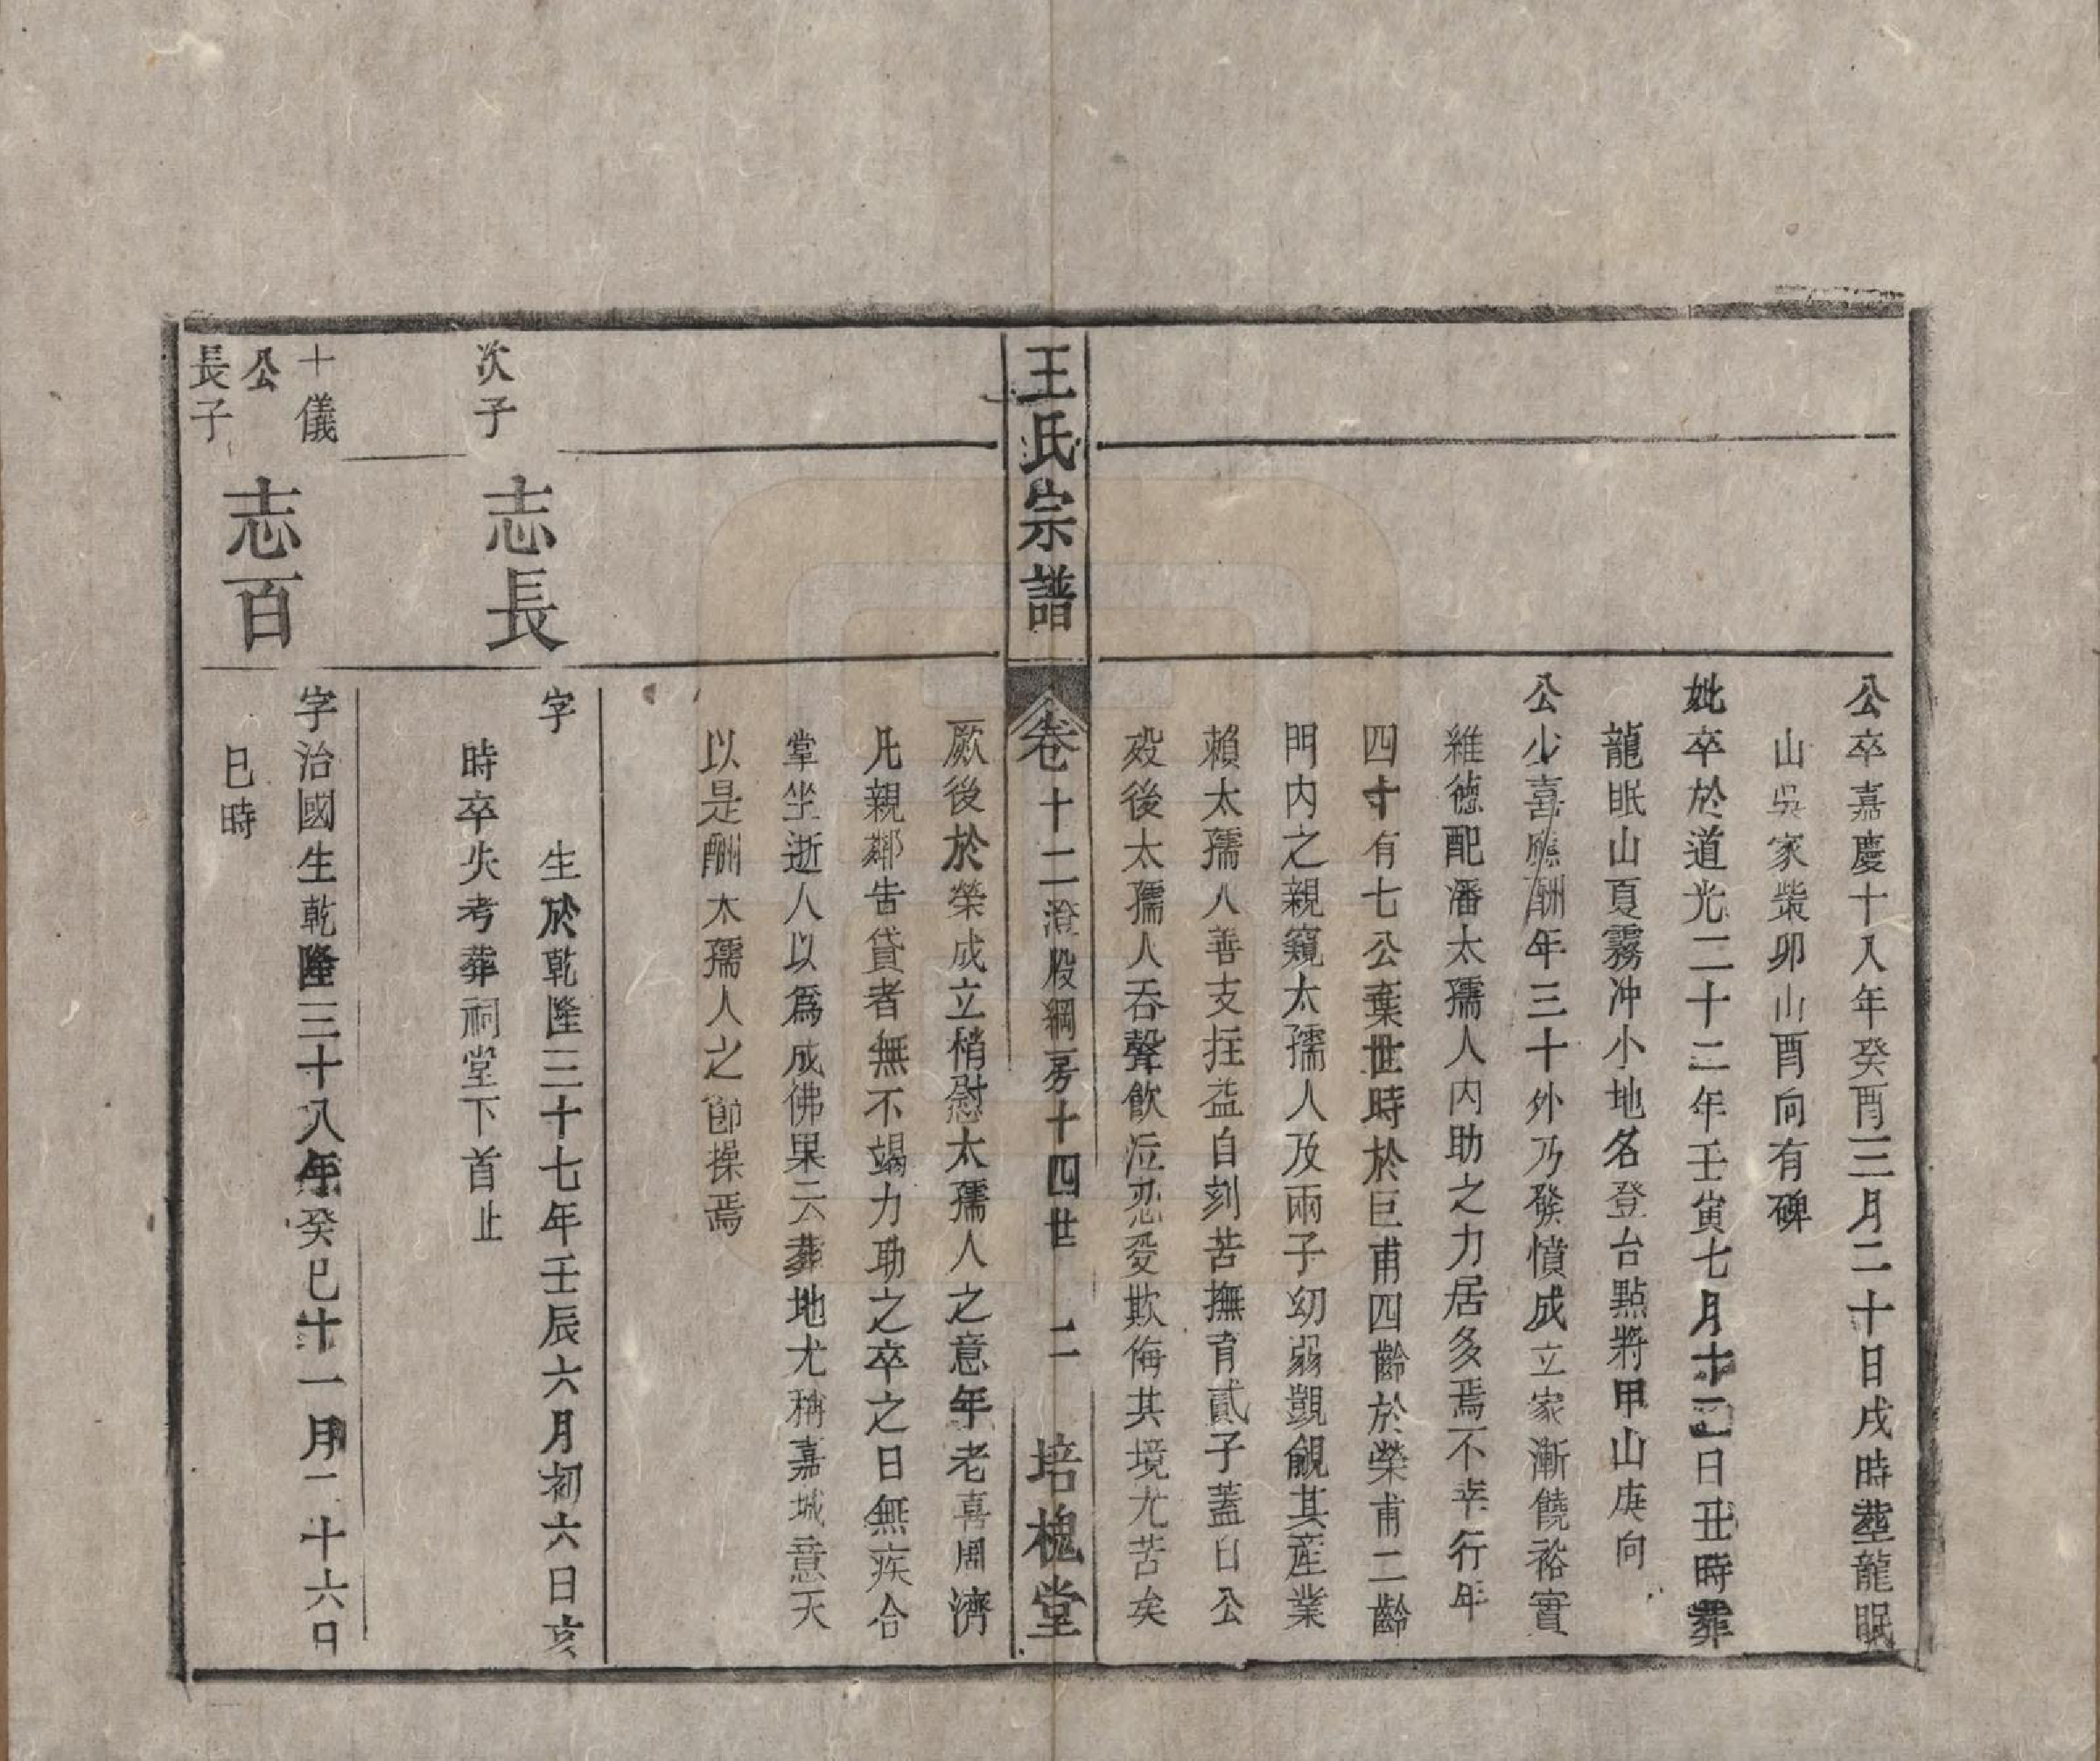 公卒嘉慶十八年癸酉三月二十日戌時塟龍眠
山吳家柴卯山酉向有碑
妣卒於道光二十二年壬寅七月十二日丑時葬
龍眠山夏霧冲小地名登台點將甲山庚向
公少喜應酬年三十外乃發憤成立家漸饒裕實
維德配潘太孺人内助之力居多焉不幸行年
四十有七公棄世時於巨甫四齡於榮甫二齡
門内之親窺太孺人及兩子幼弱覬覦其産業
賴太孺人善支拄益自刻苦撫育貳子蓋自公
歿後太孺人吞聲飲泣忍受欺侮其境尤苦矣
王氏宗譜
卷十二澄股綱房十四世
二
培槐堂
厥後於榮成立稍慰太孺人之意年老喜周濟
凡親鄰告貸者無不竭力助之卒之日無疾合
掌坐逝人以爲成佛果云葬地尤稱嘉城意天
以是酬太孺人之節操焉
次子
志長
字
生於乾隆三十七年壬辰六月初六日亥
時卒失考葬祠堂下首止
十儀
公
長子
志百
字治國生乾隆三十八年癸巳十一月一十六日
巳時